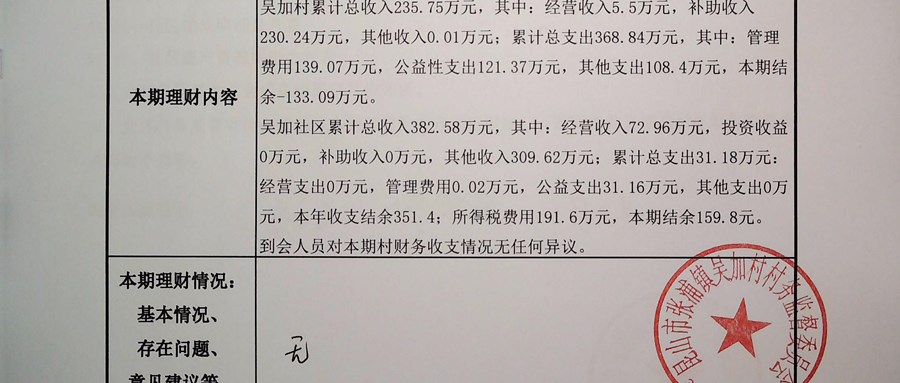 吴加村累计总收入235.75万元，其中：经营收入5.5万元，补助收入
230.24万元，其他收入0.01万元；累计总支出368.84万元，其中：管理
费用139.07万元，公益性支出121.37万元，其他支出108.4万元，本期结
余-133.09万元。
本期理财内容
吴加社区累计总收入382.58万元，其中：经营收入72.96万元，投资收益
0万元，补助收入0万元，其他收入309.62万元；累计总支出31.18万元：
经营支出0万元，管理费用0.02万元，公益支出31.16万元，其他支出0万
元，本年收支结余351.4；所得税费用191.6万元，本期结余159.8元。
到会人员对本期村财务收支情况无任何异议。
本期理财情况：
基本情况、
存在问题、
意见建议等。
无
昆山市张浦镇吴加村村务监督委员会